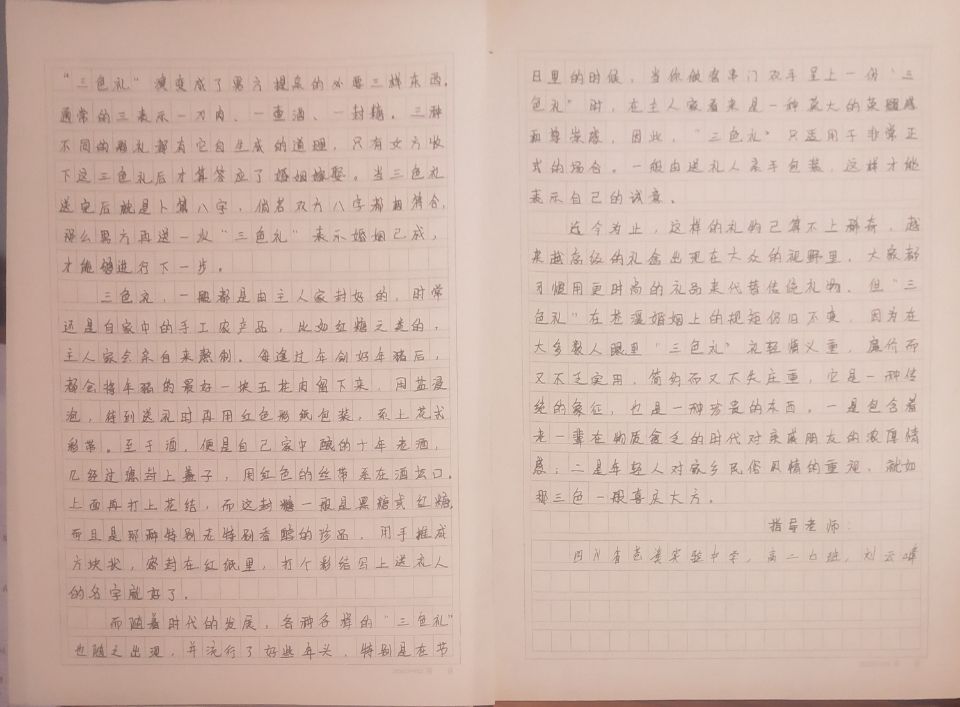 “三色礼”演变成了男方提亲的必要三样东西,
通常的三表示一刀肉、一壶酒、一封糖。三种
不同的 礼都有它自生成的道理,只有女方收
下这三色礼后才算答应了婚姻嫁娶。当三色礼
送完后就是卜算八字,倘若双方八字都相符合,
那么男方再送一次“三色礼”表示婚姻已成,
才能够进行下一步。
三色礼,一般都是由主人家封好的,时常
还是自家中的手工农产品,比如红糖之类的,
主人家会亲自来熬制。每逢过年刨好年猪后,
都会将年猪的最好一块五花肉留下来,用盐浸
泡,待到送礼时再用红色 纸包装,系上花式
彩带。至于酒,便是自己家中酿的十年老酒,
几经过滤封上盖子,用红色的丝带系在酒坛口,
上面再打上花结,而这封糖一般是黑糖或红糖,
而且是那种特别老特别香醇的珍品,用手推成
方块状,密封在红纸里,打个彩结写上送礼人
的名字就好了。
而随着时代的发展,各种各样的“三色礼”
也随之出现,并流行了好些年头,特别是在节
日里的时候,当你做客串门双手呈上一份“三
色礼”时,在主人家看来是一种莫大的荣耀感
和尊崇感,因此,“三色礼”只适用于非常正
式的场合。一般由送礼人亲手包装,这样才能
表示自己的诚意。
迄今为止,这样的礼物已算不上稀奇,越
来越高级的礼盒出现在大众的视野里,大家都
习惯用更时尚的礼品来代替传统礼物。但“三
色礼”在苍溪婚姻上的规矩仍旧不变,因为在
大多数人眼里“三色礼”礼轻情义重,廉价而
又不乏实用,简约而又不失庄重,它是一种传
统的象征,也是一种珍贵的东西,一是包含着
老一辈在物质匮乏的时代对亲戚朋友的浓厚情
感;二是年轻人对家乡民俗风情的重视,就如
那三色一般喜庆大方。
指导老师:
四川省苍溪实验中学,高二 班,刘云峰